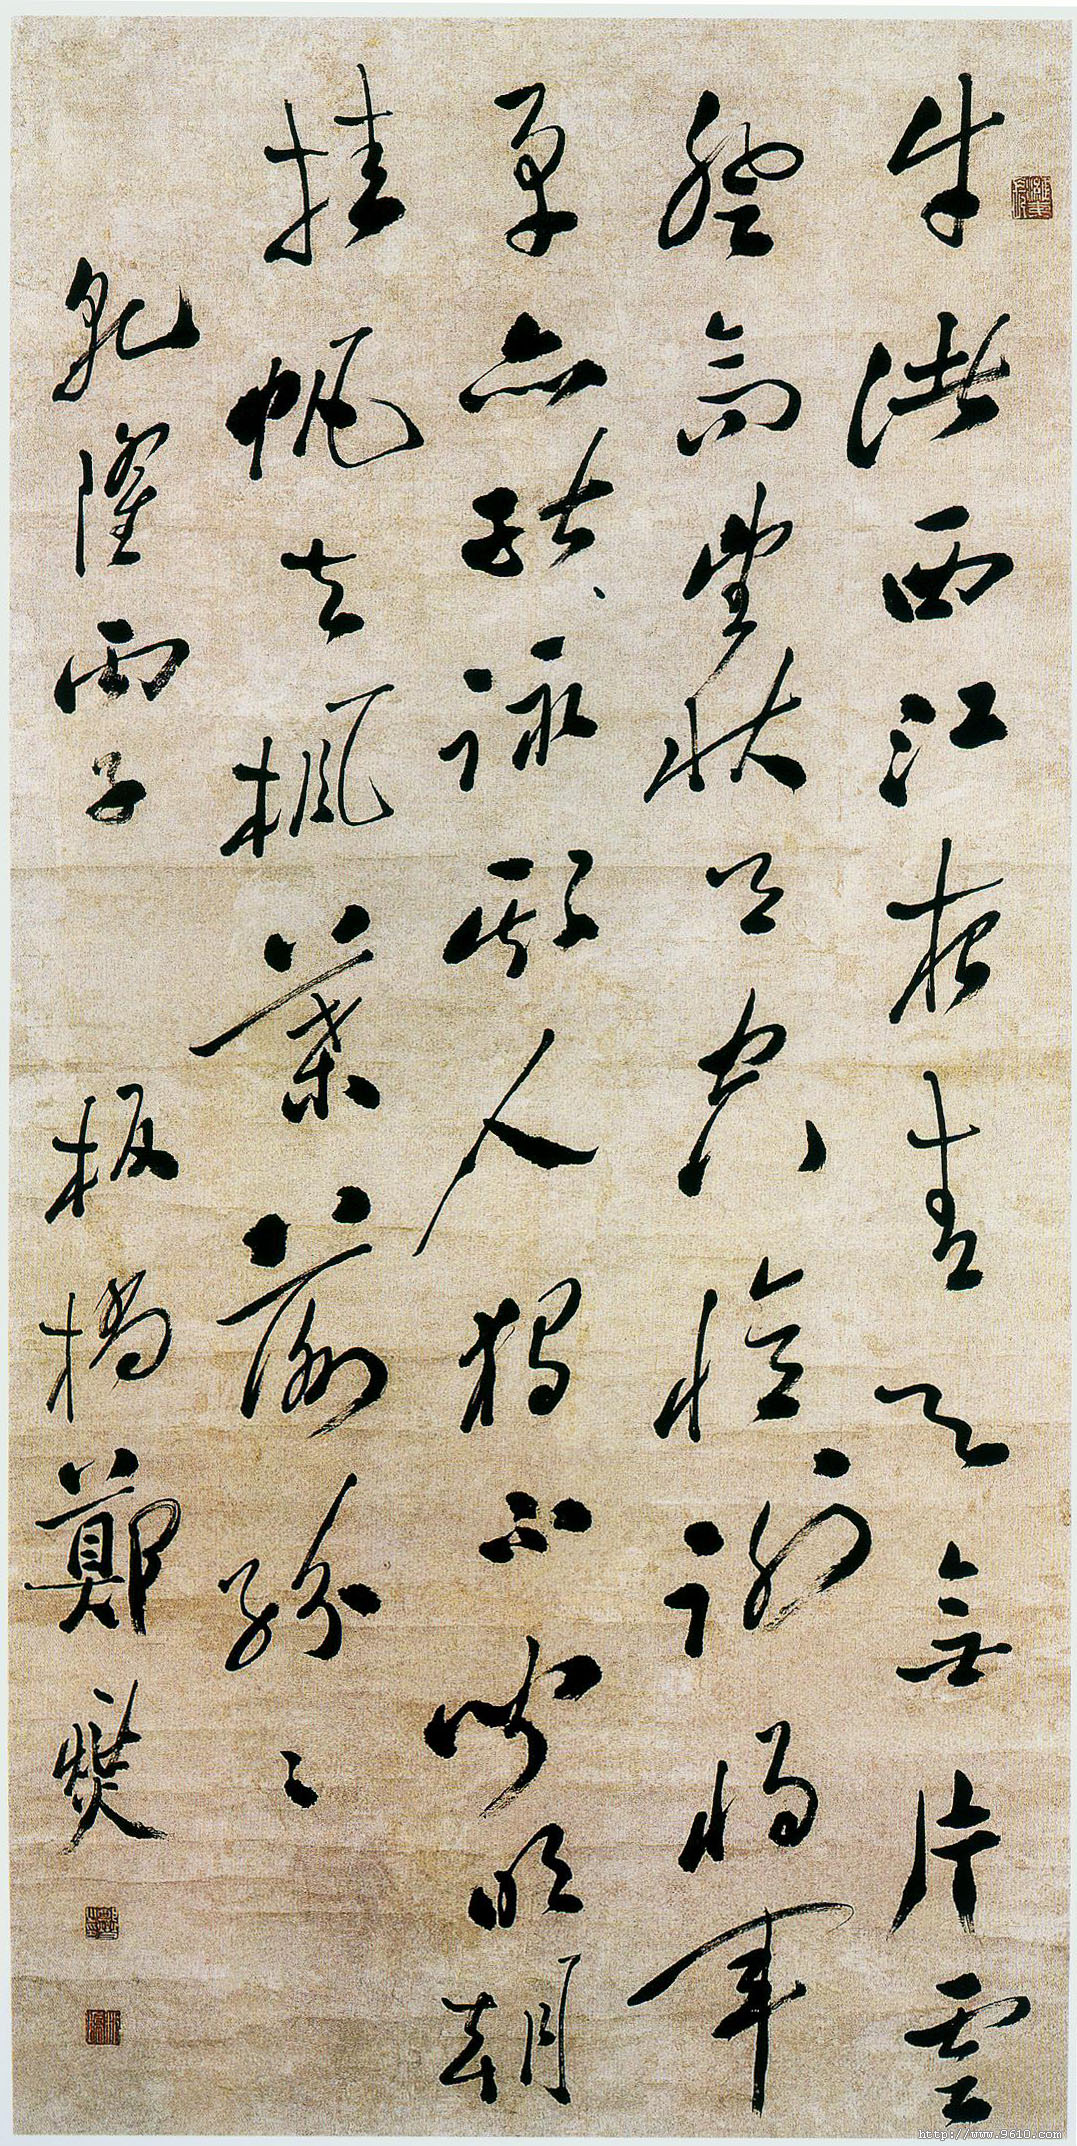 牛渚西江夜青天無片雲
登高望秋月空憶謝將軍
亦能詠斯人獨不聞明朝
挂帆去楓葉落紛〻
乾隆丙子 板橋鄭燮
http://www.9610.com